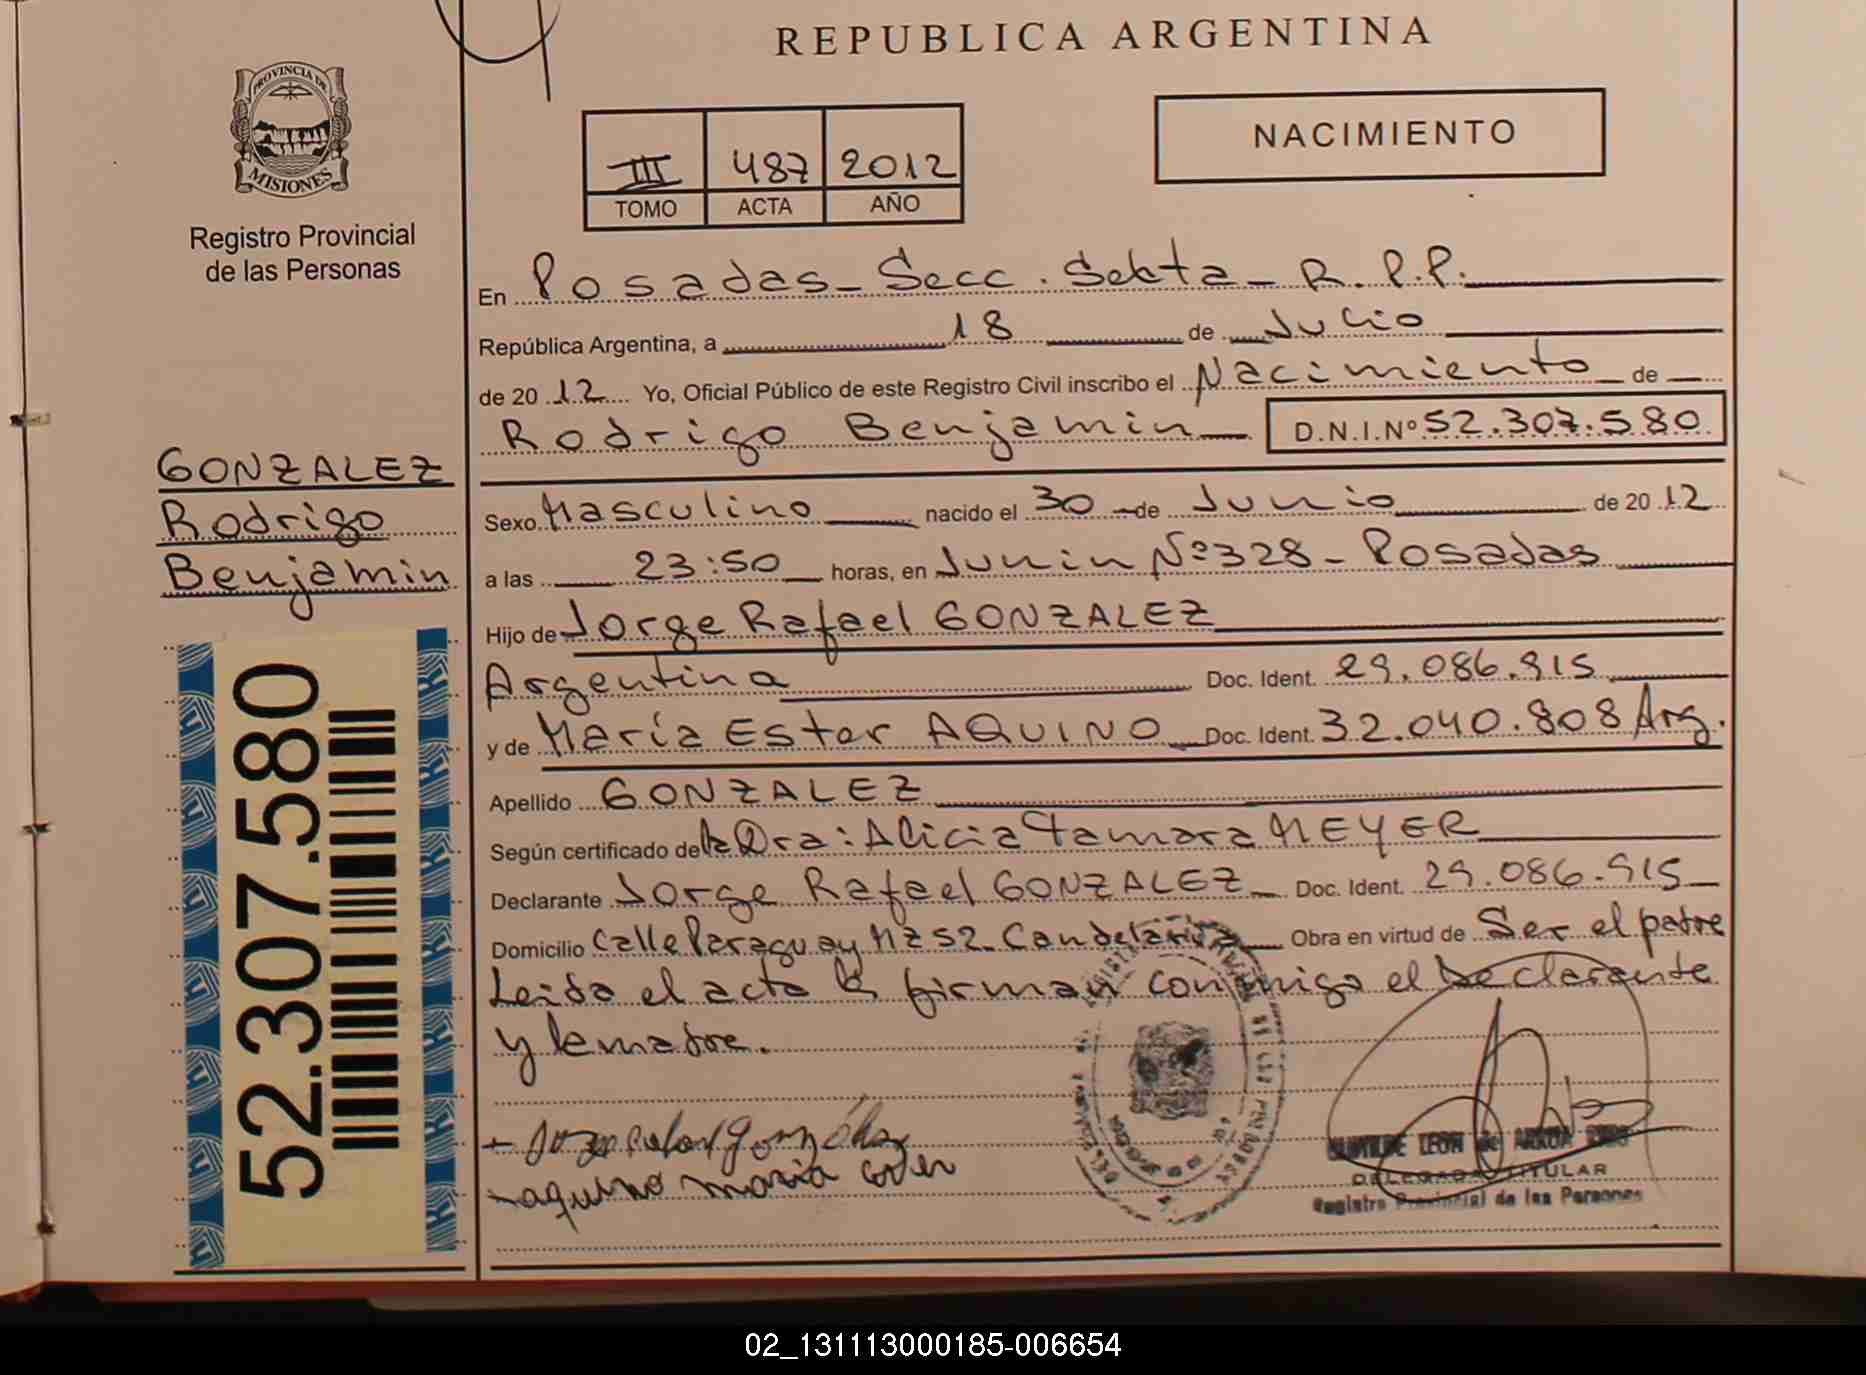 REPUBLICA ARGENTINA
PROVINCIA DE
MISIONES
Registro Provincial
de las Personas
III 487 2012
TOMO ACTA AÑO
NACIMIENTO
En Posadas - Secc. Sexta - R.P.P.
República Argentina, a 18 de Julio
de 20 12 Yo, Oficial Público de este Registro Civil inscribo el Nacimiento de
Rodrigo Benjamin D.N.I.Nº 52.307.580
GONZALEZ
Rodrigo
Benjamin
52.307.580
Sexo Masculino nacido el 30 de Junio de 20 12
a las 23:50 horas, en Junin Nº 328 - Posadas
Hijo de Jorge Rafael GONZALEZ
Argentina Doc. Ident. 29.086.915
y de María Ester AQUINO Doc. Ident. 32.040.808 Arg.
Apellido GONZALEZ
Según certificado de la Dra: Alicia Tamara MEYER
Declarante Jorge Rafael GONZALEZ Doc. Ident. 29.086.915
Domicilio Calle Paraguay Mz 52 - Candelaria Obra en virtud de Ser el padre
Leida el acta la firman conmigo el Declarante
y la madre.
aquino maria ester
DELEGADA TITULAR
Registro Provincial de las Personas
02_131113000185-006654